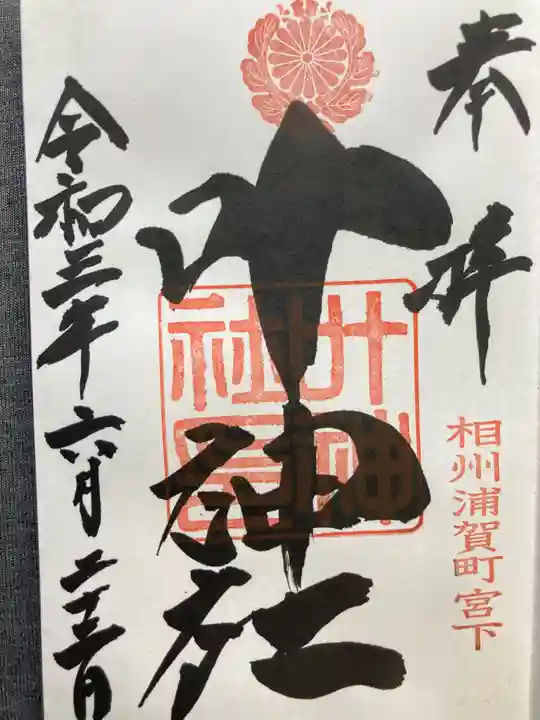 奉拝
相州浦賀町宮下
叶神社
叶神社
令和三年六月二十三日